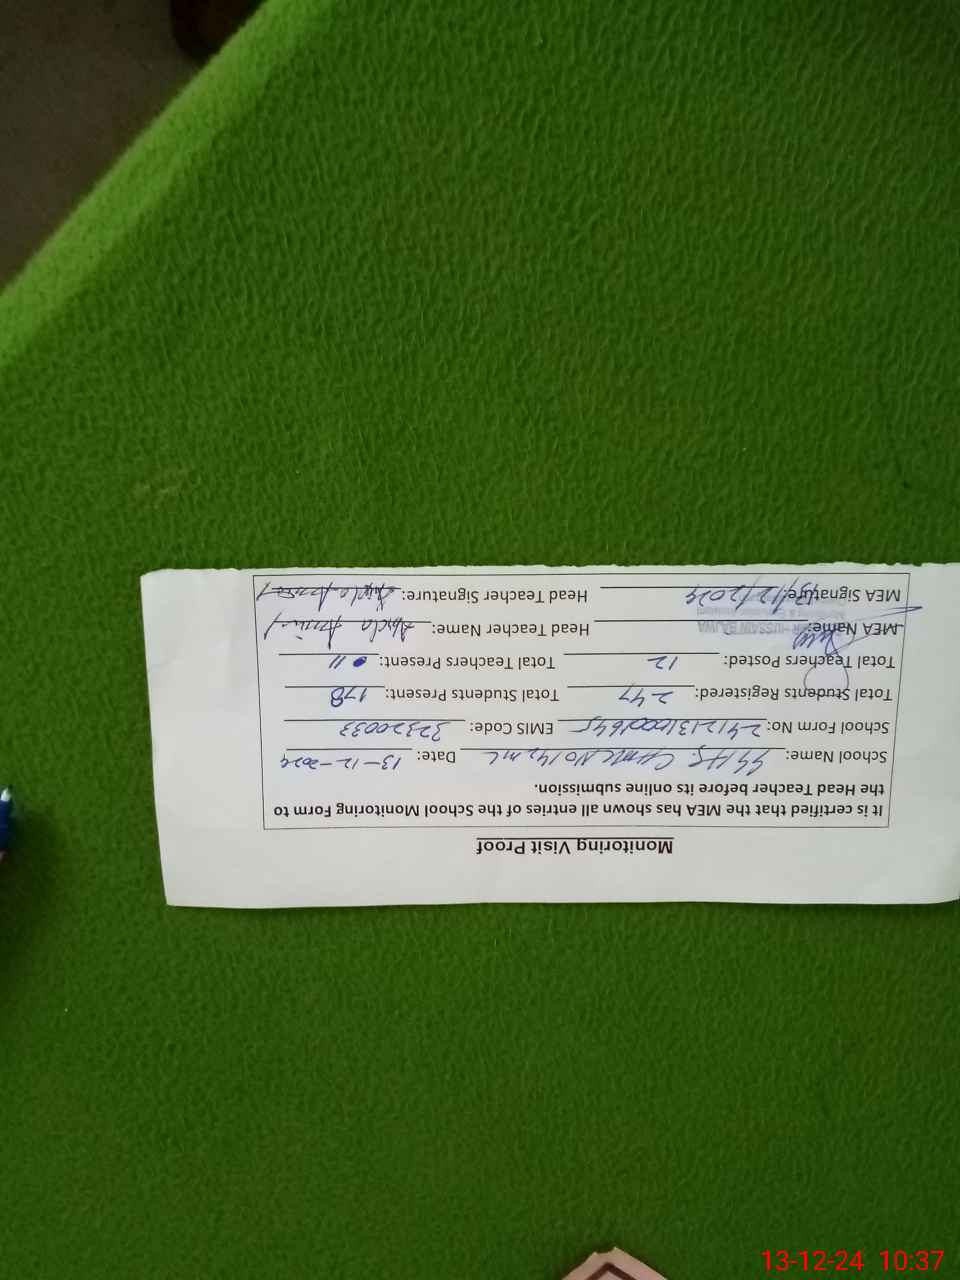 Monitoring Visit Proof
It is certified that the MEA has shown all entries of the School Monitoring Form to
the Head Teacher before its online submission.
School Name: GGHS Chak No 142 ML Date: 13-12-2024
School Form No: EMIS Code: 32320033
Total Students Registered: 247 Total Students Present: 178
Total Teachers Posted: 12 Total Teachers Present: 11
MEA Name: HUSSAIN BAJWA Head Teacher Name:
MEA Signature: 13/12/2024 Head Teacher Signature:
13-12-24 10:37